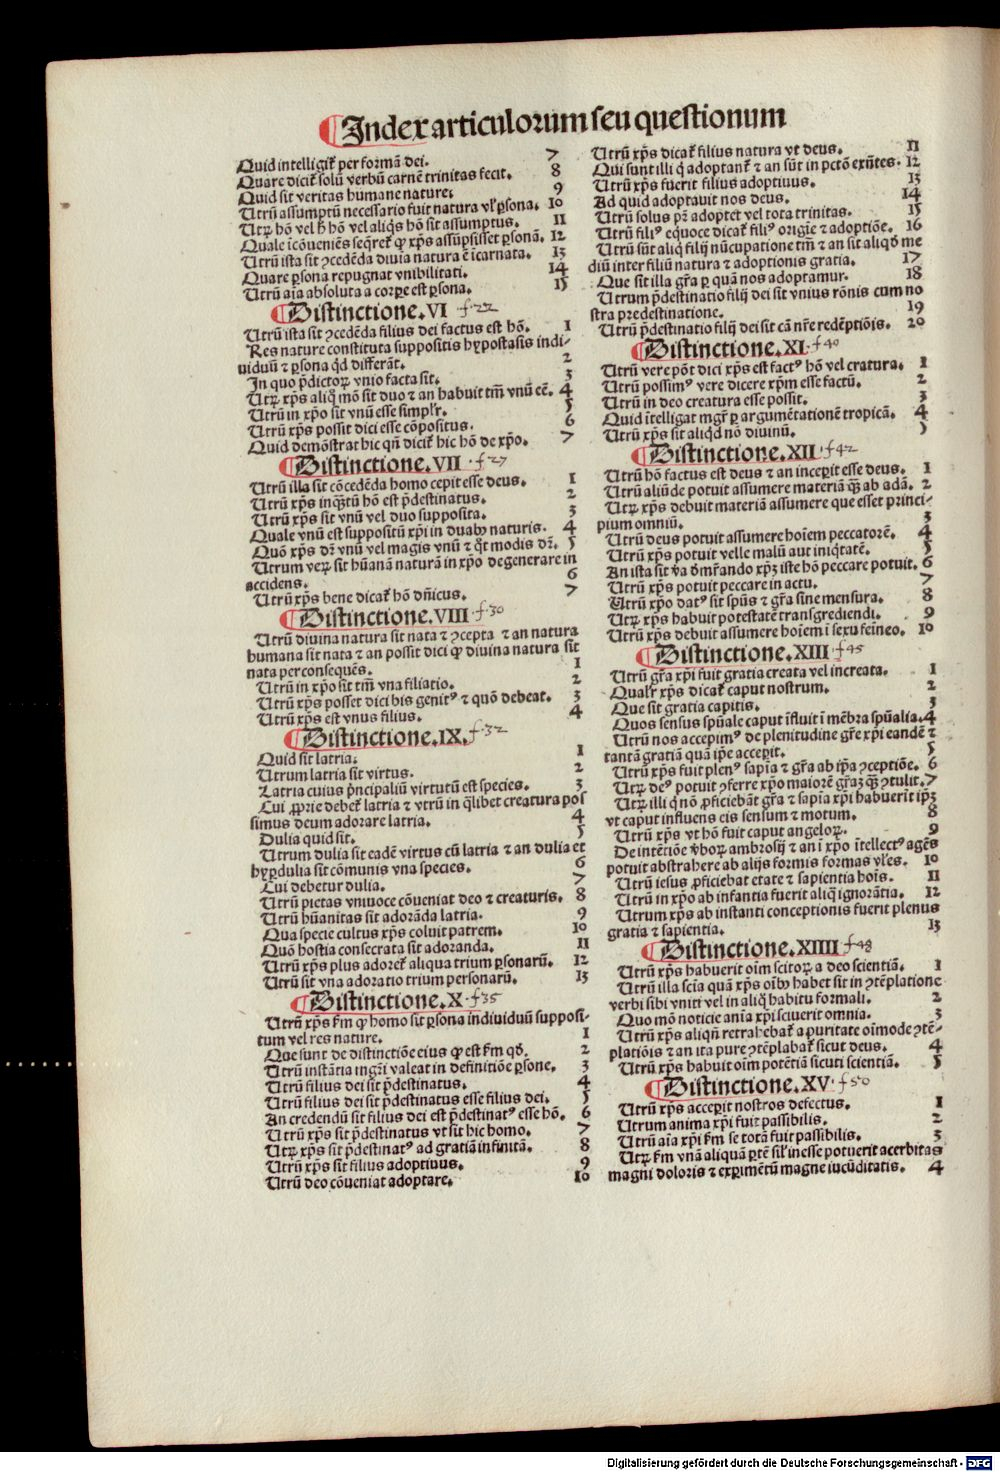 ¶ Index articulorum seu questionum
Quid intelligit᷑ per formā dei. 7
Quare dicit᷑ solū verbū carnē trinitas fecit. 8
Quid sit veritas humane nature. 9
Utrū assumptū necessario fuit natura vl' ꝑsona. 10
Utꝝ hō vel h̄ hō vel aliq̄s hō sit assumptus. 11
Quale īcōueniēs seq̄ret᷑ ꝙ xp̄s assūpsisset ꝑsonā. 12
Utrū ista sit ꝯcedēda diuīa natura ē īcarnata. 13
Quare ꝑsona repugnat vnibilitati. 14
Utrū aīa absoluta a corꝑe est ꝑsona. 15
¶ Distinctione. VI f 22
Utrū ista sit ꝯcedēda filius dei factus est hō. 1
Res nature constituta suppositis hypostasis indi-
uiduū ⁊ ꝑsona qd̄ differāt. 2
In quo p̄dictoꝝ vnio facta sit. 3
Utꝝ xp̄s aliq̊ mō sit duo ⁊ an habuit tm̄ vnū eē. 4
Utrū in xp̄o sit vnū esse simpl'r. 5
Utrū xp̄s possit dici esse cōpositus. 6
Quid demōstrat hic qn̄ dicit᷑ hic hō de xp̄o. 7
¶ Distinctione. VII f 27
Utrū illa sit cōcedēda homo cepit esse deus. 1
Utrū xp̄s inq̄ꝫtū hō est p̄destinatus. 2
Utrū xp̄s sit vnū vel duo supposita. 3
Quale vnū est suppositū xp̄i in duabꝫ naturis. 4
Quō xp̄s dr̄ vnū vel magis vnū ⁊ q̊t modis dr̄. 5
Utrum veꝝ sit hūanā naturā in xp̄o degenerare in
accidens. 6
Utrū xp̄s bene dicat᷑ hō dn̄icus. 7
¶ Distinctione. VIII f 30
Utrū diuina natura sit nata ⁊ ꝯcepta ⁊ an natura
humana sit nata ⁊ an possit dici ꝙ diuina natura sit
nata per consequēs. 1
Utrū in xp̄o sit tm̄ vna filiatio. 2
Utrū xp̄s posset dici bis genitꝰ ⁊ quō debeat. 3
Utrū xp̄s est vnus filius. 4
¶ Distinctione. IX. f 32
Quid sit latria. 1
Utrum latria sit virtus. 2
Latria cuius p̄ncipaliū virtutū est species. 3
Cui ꝓprie debet᷑ latria ⁊ vtrū in q̄libet creatura pos
simus deum adorare latria. 4
Dulia quid sit. 5
Utrum dulia sit eadē virtus cū latria ⁊ an dulia et
hyꝑdulia sit cōmunis vna species. 6
Cui debetur dulia. 7
Utrū pietas vniuoce cōueniat deo ⁊ creaturis. 8
Utrū hūanitas sit adorāda latria. 9
Qua specie cultus xp̄s coluit patrem. 10
Quō hostia consecrata sit adoranda. 11
Utrū xp̄s plus adoret᷑ aliqua trium ꝑsonarū. 12
Utrū sit vna adoratio trium personarū. 13
¶ Distinctione. X. f 35
Utrū xp̄s fm̄ ꝙ homo sit ꝑsona indiuiduū supposi-
tum vel res nature. 1
Que sunt de distinctiōe eius ꝙ est fm̄ qd̄. 2
Utrū instātia ingr̄i valeat in definitiōe ꝑsone. 3
Utrū filius dei sit p̄destinatus. 4
Utrū filius dei sit p̄destinatus esse filius dei. 5
An credendū sit filius dei est p̄destinatꝰ esse hō. 6
Utrū xp̄s sit p̄destinatus vt sit hic homo. 7
Utꝝ xp̄s sit p̄destinatꝰ ad gratiā infinitā. 8
Utrū xp̄s sit filius adoptiuus. 9
Utrū deo cōueniat adoptare. 10
Utrū xp̄s dicat᷑ filius natura vt deus. 11
Qui sunt illi q̄ adoptant᷑ ⁊ an sūt in pctō exn̄tes. 12
Utrū xp̄s fuerit filius adoptiuus. 13
Ad quid adoptauit nos deus. 14
Utrū solus pr̄ adoptet vel tota trinitas. 15
Utrū filiꝰ equoce dicat᷑ filiꝰ origīe ⁊ adoptiōe. 16
Utrū sūt aliq̄ filij nūcupatione tm̄ ⁊ an sit aliqd̄ me
diū inter filiū natura ⁊ adoptionis gratia. 17
Que sit illa gr̄a ꝑ quā nos adoptamur. 18
Utrum p̄destinatio filij dei sit vnius rōnis cum no
stra predestinatione. 19
Utrū p̄destinatio filij dei sit cā nr̄e redēptiōis. 20
¶ Distinctione. XI. f 40
Utrū vere pōt dici xp̄s est factꝰ hō vel cratura. 1
Utrū possimꝰ vere dicere xp̄m esse factū. 2
Utrū in deo creatura esse possit. 3
Quid ītelligat mgr̄ ꝑ argumētationē tropicā. 4
Utrū xp̄s sit aliqd̄ nō diuinū. 5
¶ Distinctione. XII f 42
Utrū hō factus est deus ⁊ an inceꝑit esse deus. 1
Utrū aliūde potuit assumere materiā q̄ꝫ ab adā. 2
Utꝝ xp̄s debuit materiā assumere que esset princi-
pium omniū. 3
Utrū deus potuit assumere hoīem peccatorē. 4
Utrū xp̄s potuit velle malū aut iniq̄tatē. 5
An ista sit v̄a d̄mr̄ando xp̄ꝫ iste hō peccare potuit. 6
Utrū xp̄s potuit peccare in actu. 7
Utrū xp̄o datꝰ sit sp̄us ⁊ gr̄a sine mensura. 8
Utꝝ xp̄s habuit potestatē transgrediendi. 9
Utrū xp̄s debuit assumere hoīem ī sexu feīneo. 10
¶ Distinctione. XIII f 45
Utrū gr̄a xp̄i fuit gratia creata vel increata. 1
Qual'r xp̄s dicat᷑ caput nostrum. 2
Que sit gratia capitis. 3
Quos sensus sp̄uale caput īfluit ī mēbra sp̄ualia. 4
Utrū nos accepimꝰ de plenitudine gr̄e xp̄i eandē ⁊
tantā gratiā quā ip̄e acceꝑit. 5
Utrū xp̄s fuit plenꝰ sapīa ⁊ gr̄a ab ip̄a ꝯceptiōe. 6
Utꝝ deꝰ potuit ꝯferre xp̄o maiorē gr̄aꝫ q̄ꝫ ꝯtulit. 7
Utꝝ illi q̄ nō ꝓficiebāt gr̄a ⁊ sapīa xp̄i habuerīt ip̄ꝫ
vt caput influens eis sensum ⁊ motum. 8
Utrū xp̄s vt hō fuit caput angeloꝝ. 9
De intētiōe v̄boꝝ ambrosij ⁊ an ī xp̄o ītellectꝰ agēs
potuit abstrahere ab alijs formis formas vl'es. 10
Utrū iesus ꝓficiebat etate ⁊ sapientia hoīs. 11
Utrū in xp̄o ab infantia fuerit aliq̄ ignorātia. 12
Utrum xp̄s ab instanti conceptionis fuerit plenus
gratia ⁊ sapientia. 13
¶ Distinctione. XIIII f 48
Utrū xp̄s habuerit oīm scitoꝝ a deo scientiā. 1
Utrū illa scīa quā xp̄s oībꝫ habet sit in ꝯtēplatione
verbi sibi vniti vel in aliq̊ habitu formali. 2
Quo mō noticie anīa xp̄i sciuerit omnia. 3
Utrū xp̄s aliqn̄ retrahebat᷑ a puritate oīmode ꝯtē-
platiōis ⁊ an ita pure ꝯtēplabat᷑ sicut deus. 4
Utrū xp̄s habuit oīm potētiā sicuti scientiā. 5
¶ Distinctione. XV. f 50
Utrū xp̄s acceꝑit nostros defectus. 1
Utrum anima xp̄i fuit passibilis. 2
Utrū aīa xp̄i fm̄ se totā fuit passibilis. 3
Utꝝ fm̄ vnā aliquā ꝑtē sil' inesse potuerit acerbitas
magni doloris ⁊ exꝑimētū magne iucūditatis. 4
Digitalisierung gefördert durch die Deutsche Forschungsgemeinschaft - DFG